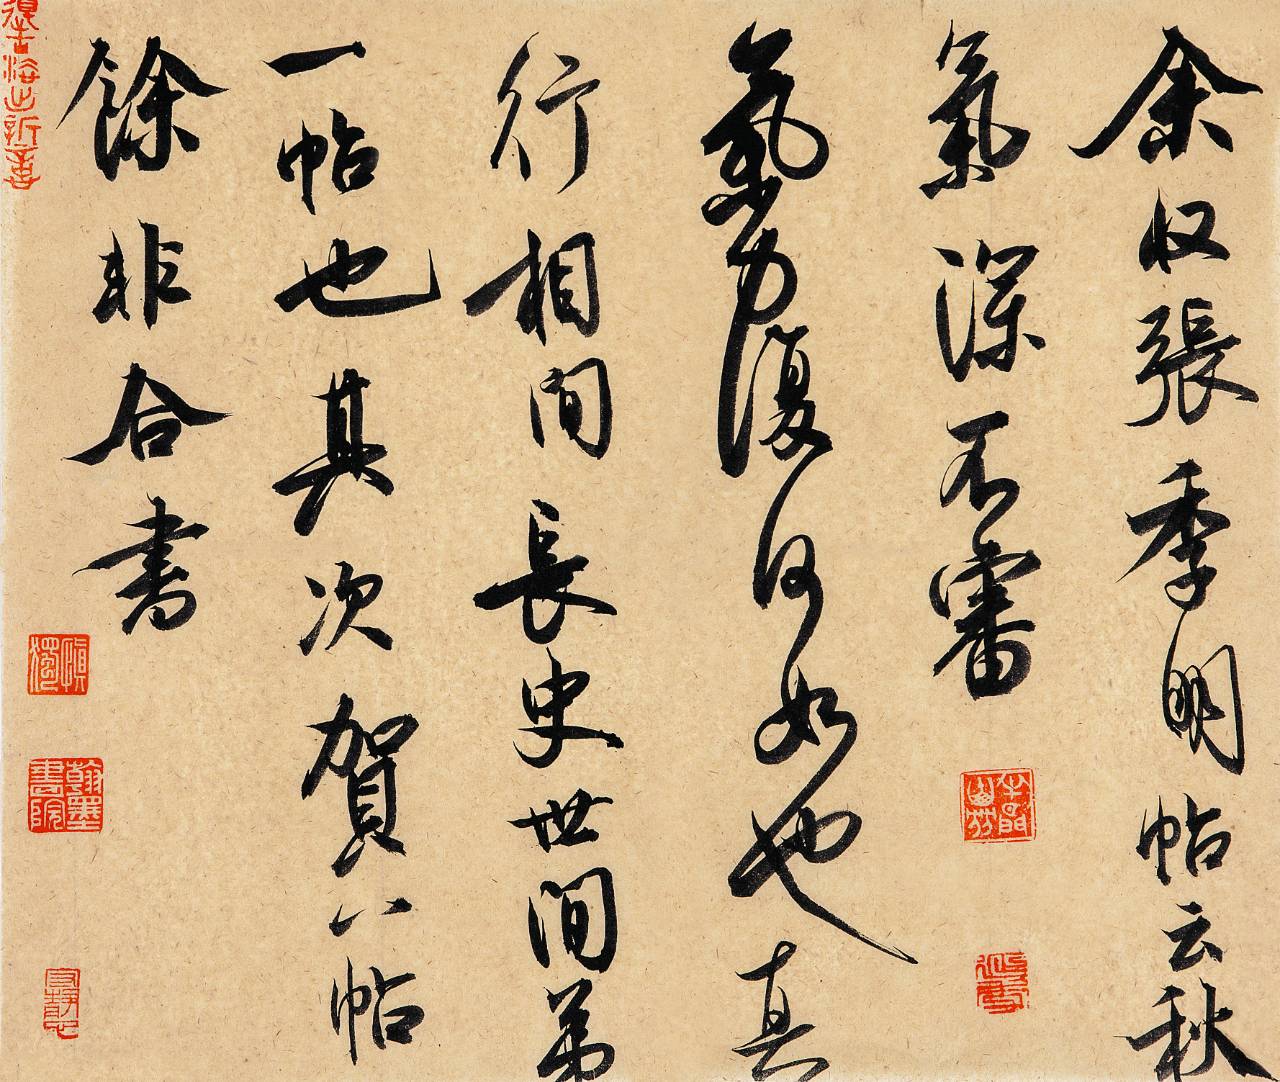 余收張季明帖云秋
氣深不審
氣力復何如也真
行相間長史世間弟
一帖也其次賀八帖
餘非合書
翰墨書院